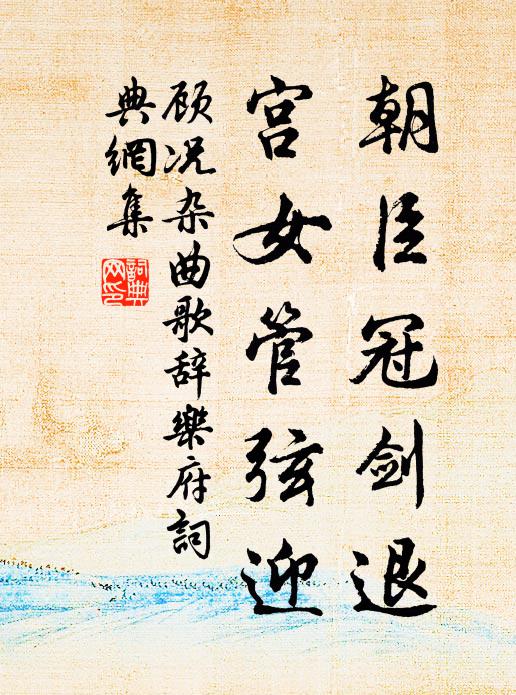 朝臣冠剑退
宫女管弦迎
顾况杂曲歌辞樂府詞
典網集
詞典网印